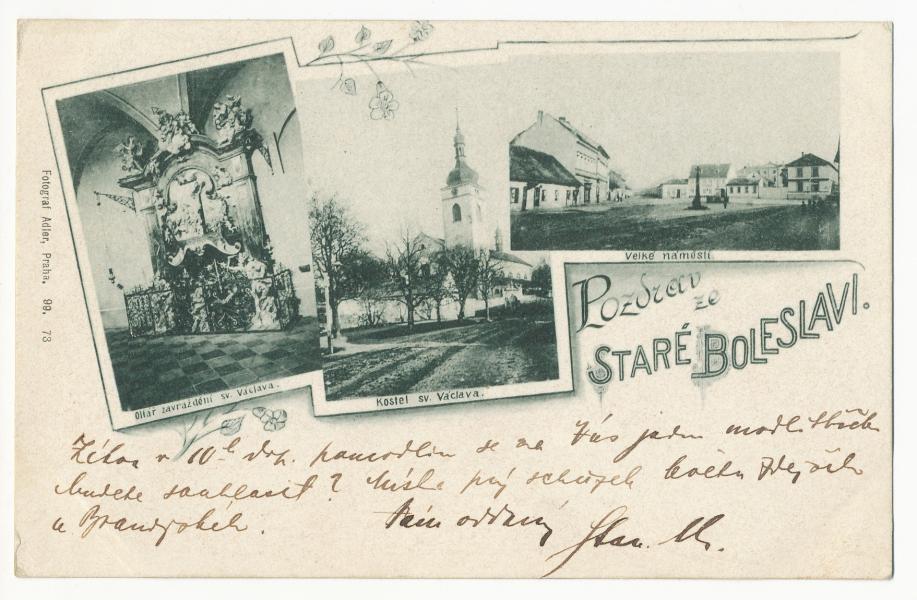 Fotograf Adler, Praha. 99. 73
Oltář zavraždění sv. Václava.
Kostel sv. Václava.
Velké náměstí.
Pozdrav
ze
STARÉ BOLESLAVI.
Zítra v 10 h dop. pomodlím se za Vás jednu modlitbičku
budete souhlasit? Místo prý schůzek květu
a Brandýských. Vám oddaný
Stan. M.